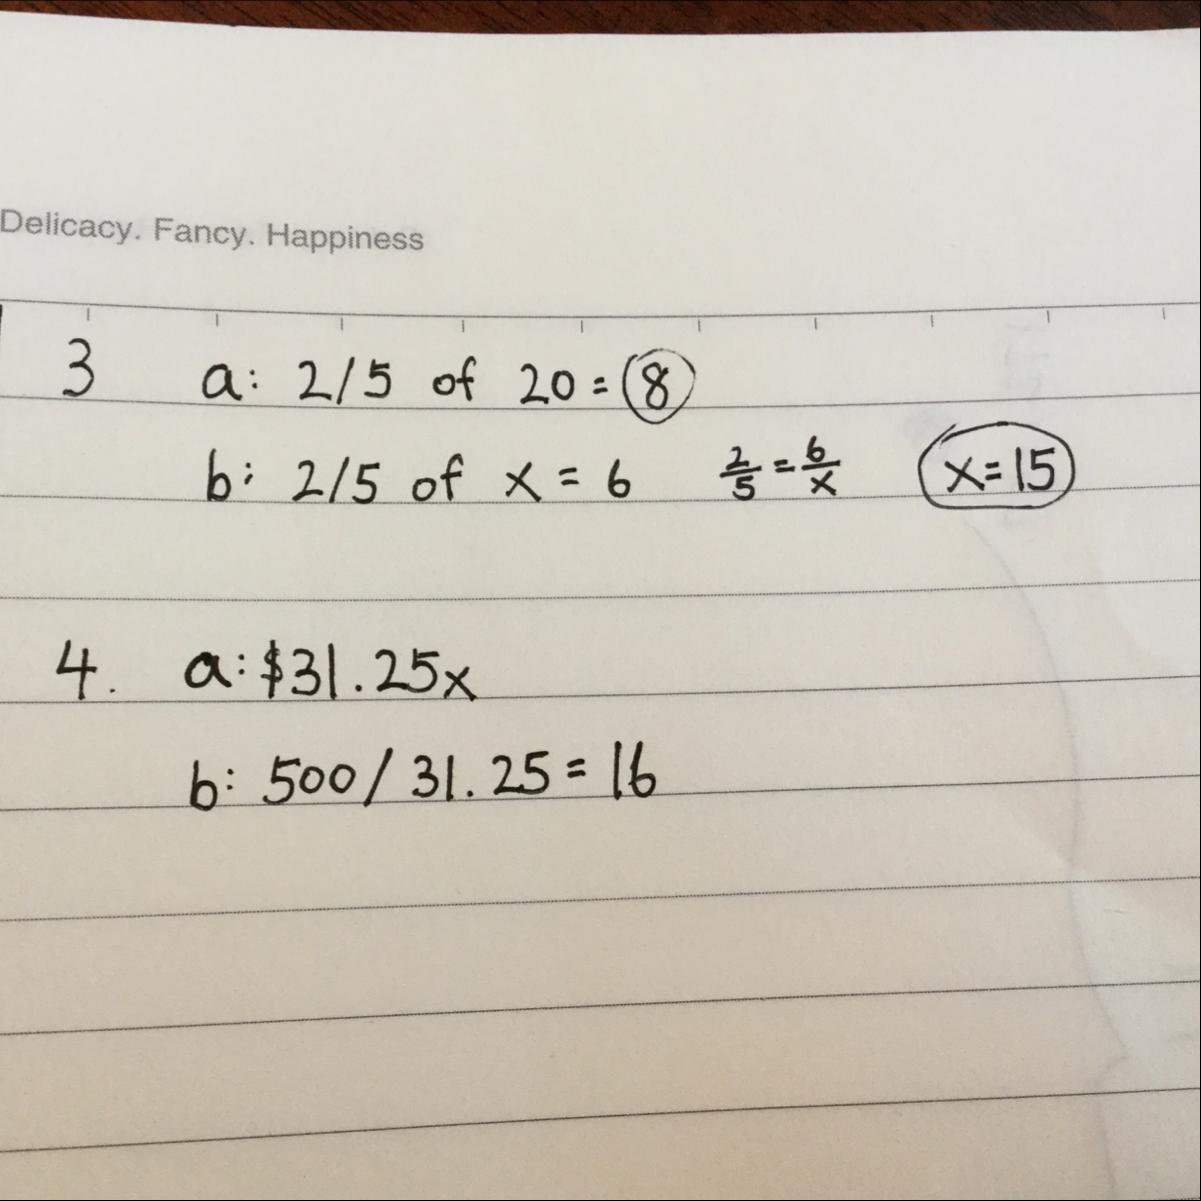 Delicacy. Fancy. Happiness
3 a: 2/5 of 20 = 8
b: 2/5 of x = 6 2/5 = 6/x x=15
4. a: $31.25x
b: 500/31.25 = 16